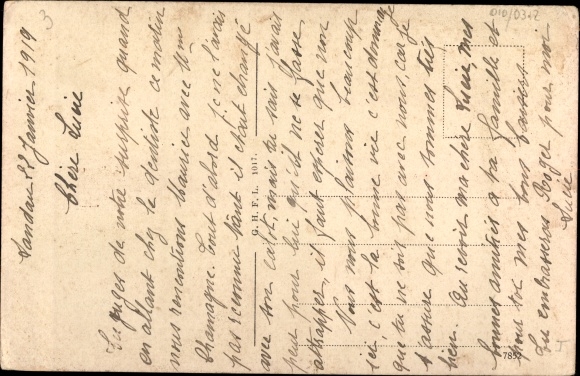 Landau 22 Janvier 1919
Chère Lucie
Tu juges de notre surprise quand
en allant chez le dentiste ce matin
nous rencontrons Maurice avec Mm
Chamagne. Tout d'abord je ne l'avais
pas reconnu tant il était changé
avec son mais tu sais j'avais
peur pour lui qu'il ne se fasse
attrapper, il faut espérer que non
Nous nous plaisons beaucoup
ici, c'est la bonne vie c'est dommage
que tu ne sois pas avec nous car je
t'assure que nous sommes très
bien. Au revoir ma chère Lucie, mes
bonnes amitiés à ta famille et
pour toi mes bons baisers
Tu embrasseras Roger pour moi
Lucie
G. H. F. L. 1017.
7857
3
010/0312